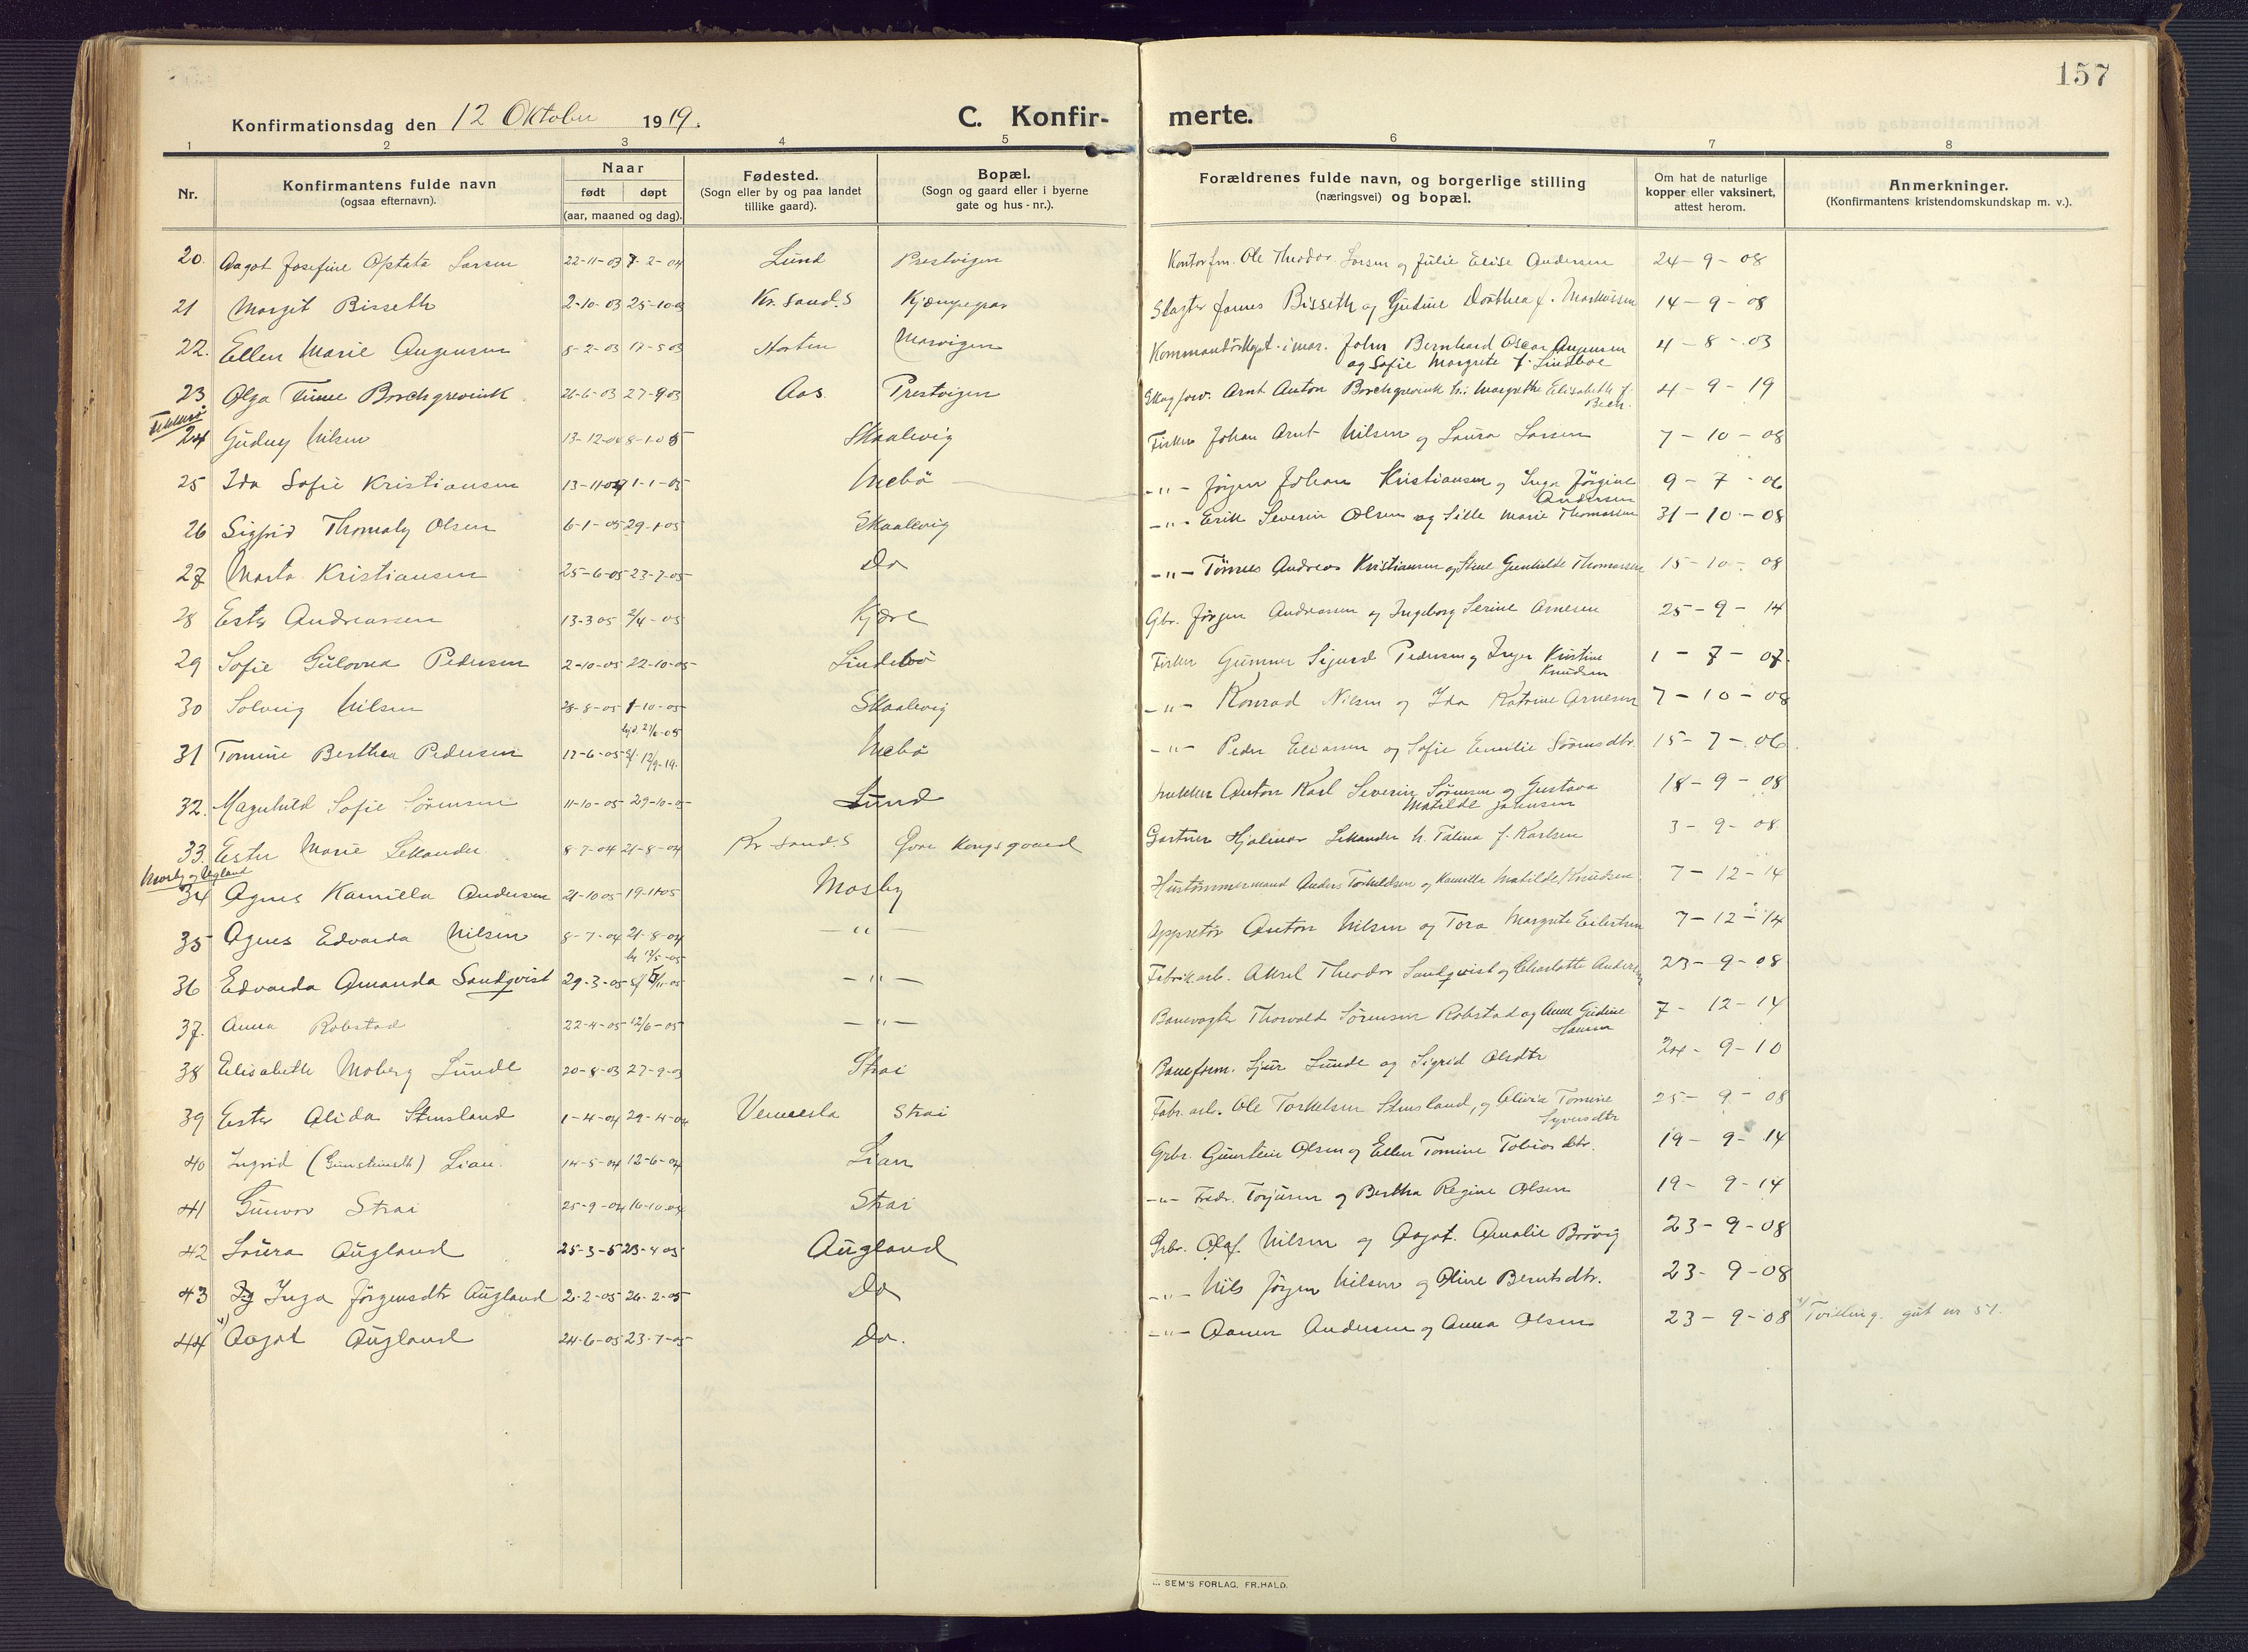 157
Konfirmationsdag den 12 Oktober 1919.
C. Konfir- merte.
1 2 3 4 5 6 7 8
Nr.
Konfirmantens fulde navn
(ogsaa efternavn).
Naar
født døpt
(aar, maaned og dag).
Fødested.
(Sogn eller by og paa landet
tillike gaard).
Bopæl.
(Sogn og gaard eller i byerne
gate og hus-nr.).
Forældrenes fulde navn, og borgerlige stilling
(næringsvei) og bopæl.
Om hat de naturlige
kopper eller vaksinert,
attest herom.
Anmerkninger.
(Konfirmantens kristendomskundskap m. v.).
20. Aagot Josefine Optata Larsen 22-11-03 7-2-04 Lund Prestvigen Kontorfm. Ole Theodor Larsen og Julie Elise Andersen 24-9-08
21 Margit Bisseth 2-10-03 25-10-03 Kr.sand.S Slagter James Bisseth og Gudine Dorthea f. Markussen 14-9-08
22. Ellen Marie Augensen 8-2-03 17-5-03 Horten Marvigen John Bernhard Oscar Augensen 4-8-03
og Sofie Margrete f. Lindboe
23 Olga Borchgrevink 26-6-03 27-9-03 Aas. Prestvigen Skogforv. Arnt Anton Borchgrevink h: Margrethe Elisabeth f. 4-9-19
24 Gudny Nilsen 13-12-04 8-1-05 Skaalevig Fisker Johan Arnt Nilsen og Laura Larsen 7-10-08
25 Ida Sofie Kristiansen 13-11-04 1-1-05 Mebö -"- Jörgen Johan Kristiansen og Inga Jörgine 9-7-06
Andersen
26 Sigfrid Thomaly Olsen 6-1-05 29-1-05 Skaalevig -"- Erik Severin Olsen og Sille Marie Thomassen 31-10-08
27 Marta Kristiansen 25-6-05 23-7-05 Do -"- Tönnes Andreas Kristiansen og Stine Gunhilde Thomassen 15-10-08
28 Ester Andreassen 13-3 05 2/4-05 Kjære Gbr. Jörgen Andreassen og Ingeborg Serine Arnesen 25-9-14
29 Sofie Gulovna Pedersen 2-10-05 22-10-05 Lindebö Fisker Gunner Sigurd Pedersen og Inger Kristine 1-7-07
Knudsen
30 Solveig Nilsen 28-8-05 1-10-05 Skaalevig -"- Konrad Nilsen og Ida Katrine Arnesen 7-10-08
31 Tomine Berthea Pedersen 17-6-05 Mebö -"- Peder Eliassen og Sofie Emilie Sörensdtr. 15-7-06
32. Magnhild Sofie Sörensen 11-10-05 29-10-05 Lund Snekker Anton Karl Severin Sörensen og Gustava 18-9-08
Matilde Johnsen
33. Ester Marie Lekander 8-7-04 21-8-04 Kr.sand.S Övre Kongsgaard Gartner Hjalmar Lekander h. Talina f. Karlsen 3-9-08
Mosby og Augland
34 Agnes Kamilla Andersen 21-10 05 19-11-05 Mosby Hustömmermand Anders Torkildsen og Kamilla Matilde Knudsen 7-12-14
35 Agnes Edvarda Nilsen 8-7-04 21-8-04 -"- Oppsetör Anton Nilsen og Tora Margrete Eilertsen 7-12-14
36 Edvarda Amanda Sandqvist 29-3-05 -"- Fabrik.arb. Aksel Theodor Sandqvist og Charlotte Andersen 23-9-08
37. Anna Robstad 22-4-05 12/6-05 -"- Banevogter Thorvald Sörensen Robstad og Anne Gudine 7-12-14
Hansen
38 Elisabeth Moberg Lunde 20-8-03 27-9-03 Strai Baneform. Sjur Lunde og Sigrid Olsdtr 24-9-10
39 Ester Alida Stensland 1-4-04 29-4-04 Vennesla Strai Fabr.arb. Ole Torkelsen Stensland, og Olivia Tomine 25-9-08
Syvertsdtr
40 Ingrid (Gunsteinsdtr) Lian 14-5-04 12-6-04 Lian Grbr. Gunstein Olsen og Ellen Tomine Tobiasdtr. 19-9-14
41 Gunvor Strai 25-9-04 16-10-04 Strai -"- Fredr. Torjusen og Bertha Regine Olsen 19-9-14
42 Laura Augland 25-3-5 23-4-05 Augland Grbr. Olaf Nilsen og Aagot Amalie Brövig 23-9-08
43 Inga Jörgensdtr Augland 2-2-05 26-2-05 Do -"- Nils Jörgen Nilsen og Oline Berntsdtr. 23-9-08
44 x) Aagot Augland 24-6-05 23-7-05 Do. -"- Aanen Andersen og Anna Olsen 23-9-08 x) Tvilling. gut nr 51.
SEM'S FORLAG. FR.HALD.